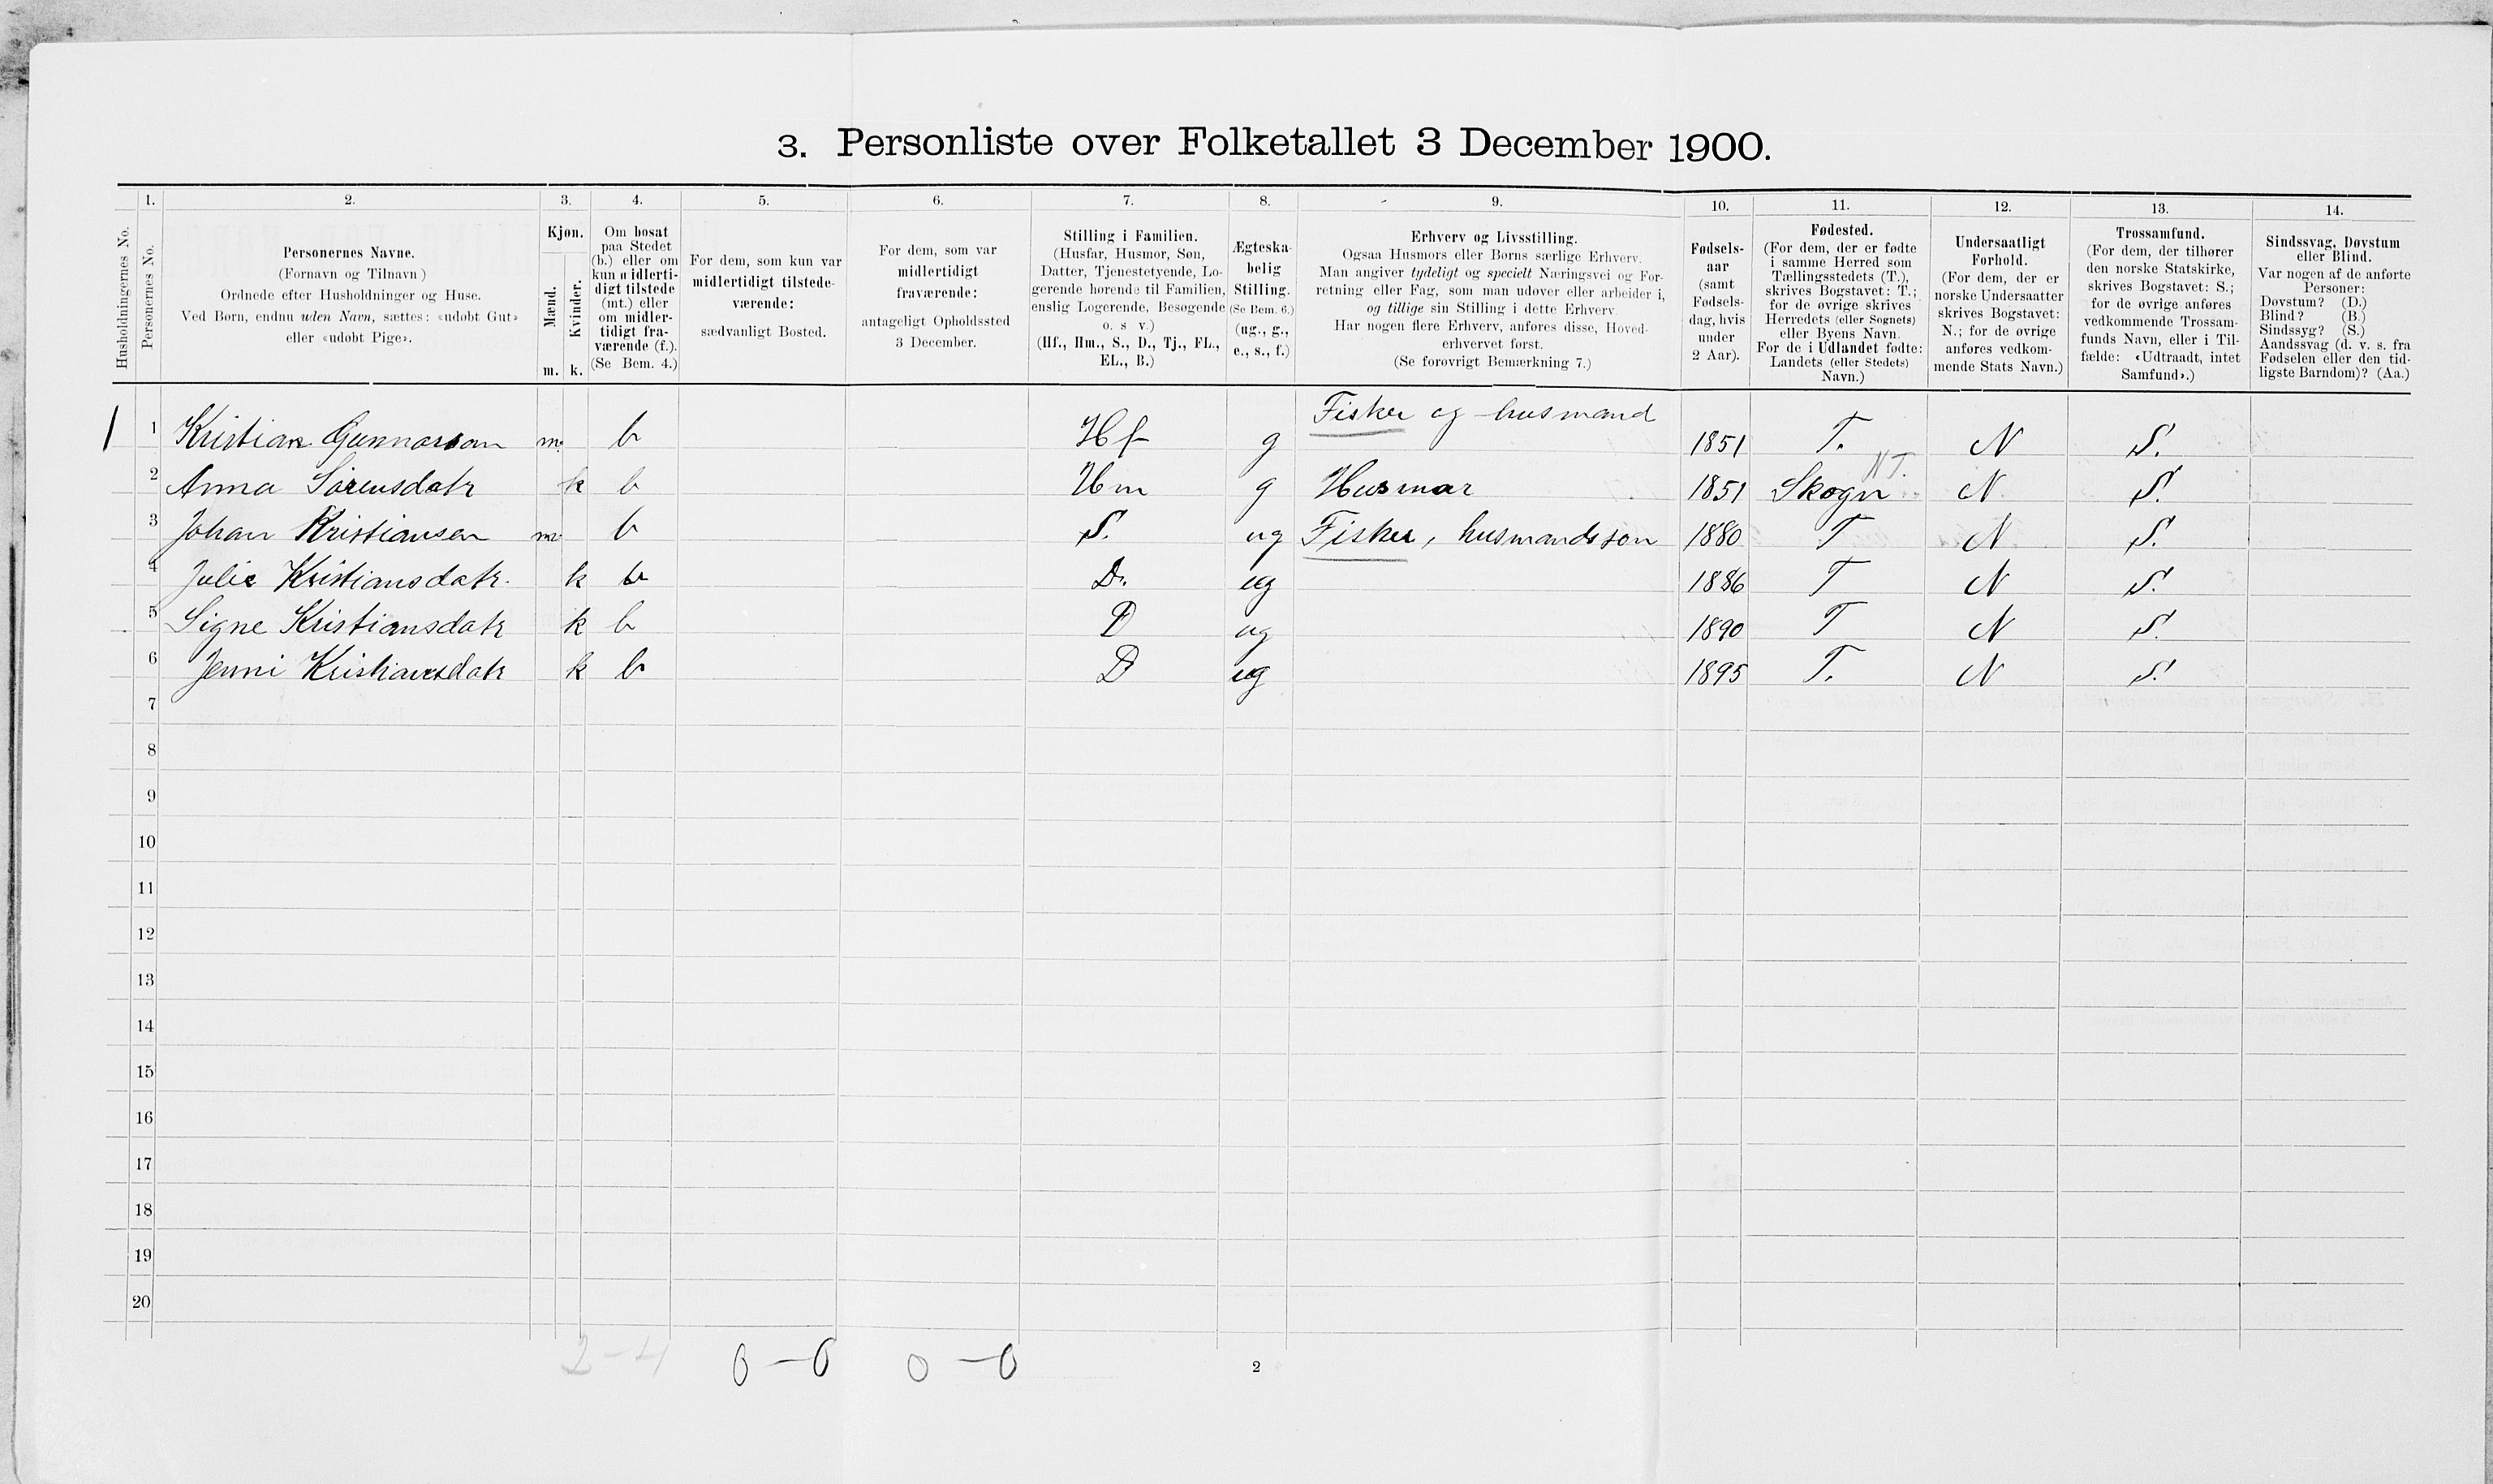 3. Personliste over Folketallet 3 December 1900.
1. 2. 3. 4. 5. 6. 7. 8. 9. 10. 11. 12. 13. 14.
Husholdningernes No.
Personernes No.
Personernes Navne.
(Fornavn og Tilnavn)
Ordnede efter Husholdninger og Huse.
Ved Børn, endnu uden Navn, sættes: «udøbt Gut»
eller «udøbt Pige».
Kjøn.
Mænd.
Kvinder.
m. k.
Om bosat
paa Stedet
(b.) eller om
kun midlerti-
digt tilstede
(mt.) eller
om midler-
tidigt fra-
værende (f.).
(Se Bem. 4.)
For dem, som kun var
midlertidigt tilstede-
værende:
sædvanligt Bosted.
For dem, som var
midlertidigt
fraværende:
antageligt Opholdssted
3 December.
Stilling i Familien.
(Husfar, Husmor, Søn,
Datter, Tjenestetyende, Lo-
gerende hørende til Familien,
enslig Logerende, Besøgende
o. s v.)
(Hf., Hm., S., D., Tj., FL.,
EL., B.)
Ægteska-
belig
Stilling.
(Se Bem. 6.)
(ug., g.,
e., s., f.)
Erhverv og Livsstilling.
Ogsaa Husmors eller Børns særlige Erhverv.
Man angiver tydeligt og specielt Næringsvei og For-
retning eller Fag, som man udøver eller arbeider i,
og tillige sin Stilling i dette Erhverv.
Har nogen flere Erhverv, anføres disse, Hoved-
erhvervet først.
(Se forøvrigt Bemærkning 7.)
Fødsels-
aar
(samt
Fødsels-
dag, hvis
under
2 Aar).
Fødested.
(For dem, der er fødte
i samme Herred som
Tællingsstedets (T.),
skrives Bogstavet: T.;
for de øvrige skrives
Herredets (eller Sognets)
eller Byens Navn.
For de i Udlandet fødte:
Landets (eller Stedets)
Navn.)
Undersaatligt
Forhold.
(For dem, der er
norske Undersaatter
skrives Bogstavet:
N.; for de øvrige
anføres vedkom-
mende Stats Navn.)
Trossamfund.
(For dem, der tilhører
den norske Statskirke,
skrives Bogstavet: S.;
for de øvrige anføres
vedkommende Trossam-
funds Navn, eller i Til-
fælde: «Udtraadt, intet
Samfund».)
Sindssvag, Døvstum
eller Blind.
Var nogen af de anførte
Personer:
Døvstum? (D.)
Blind? (B.)
Sindssyg? (S.)
Aandssvag (d. v. s. fra
Fødselen eller den tid-
ligste Barndom)? (Aa.)
1 1 Kristian Gunnarson m. b Hf g Fisker og husmand 1851 T. N S.
2 Anna Sørensdatr k b Hm g Husmor 1851 Skogn NT. N S.
3 Johan Kristiansen m b S. ug Fisker, husmandsson 1880 T N S.
4 Julie Kristiansdatr. k b D. ug 1886 T N S.
5 Signe Kristiansdatr k b D ug 1890 T N S.
6 Jenni Kristiansdatr k b D ug 1895 T. N S.
7
8
9
10
11
12
13
14
15
16
17
18
19
20
2-4 0-0 0-0
2